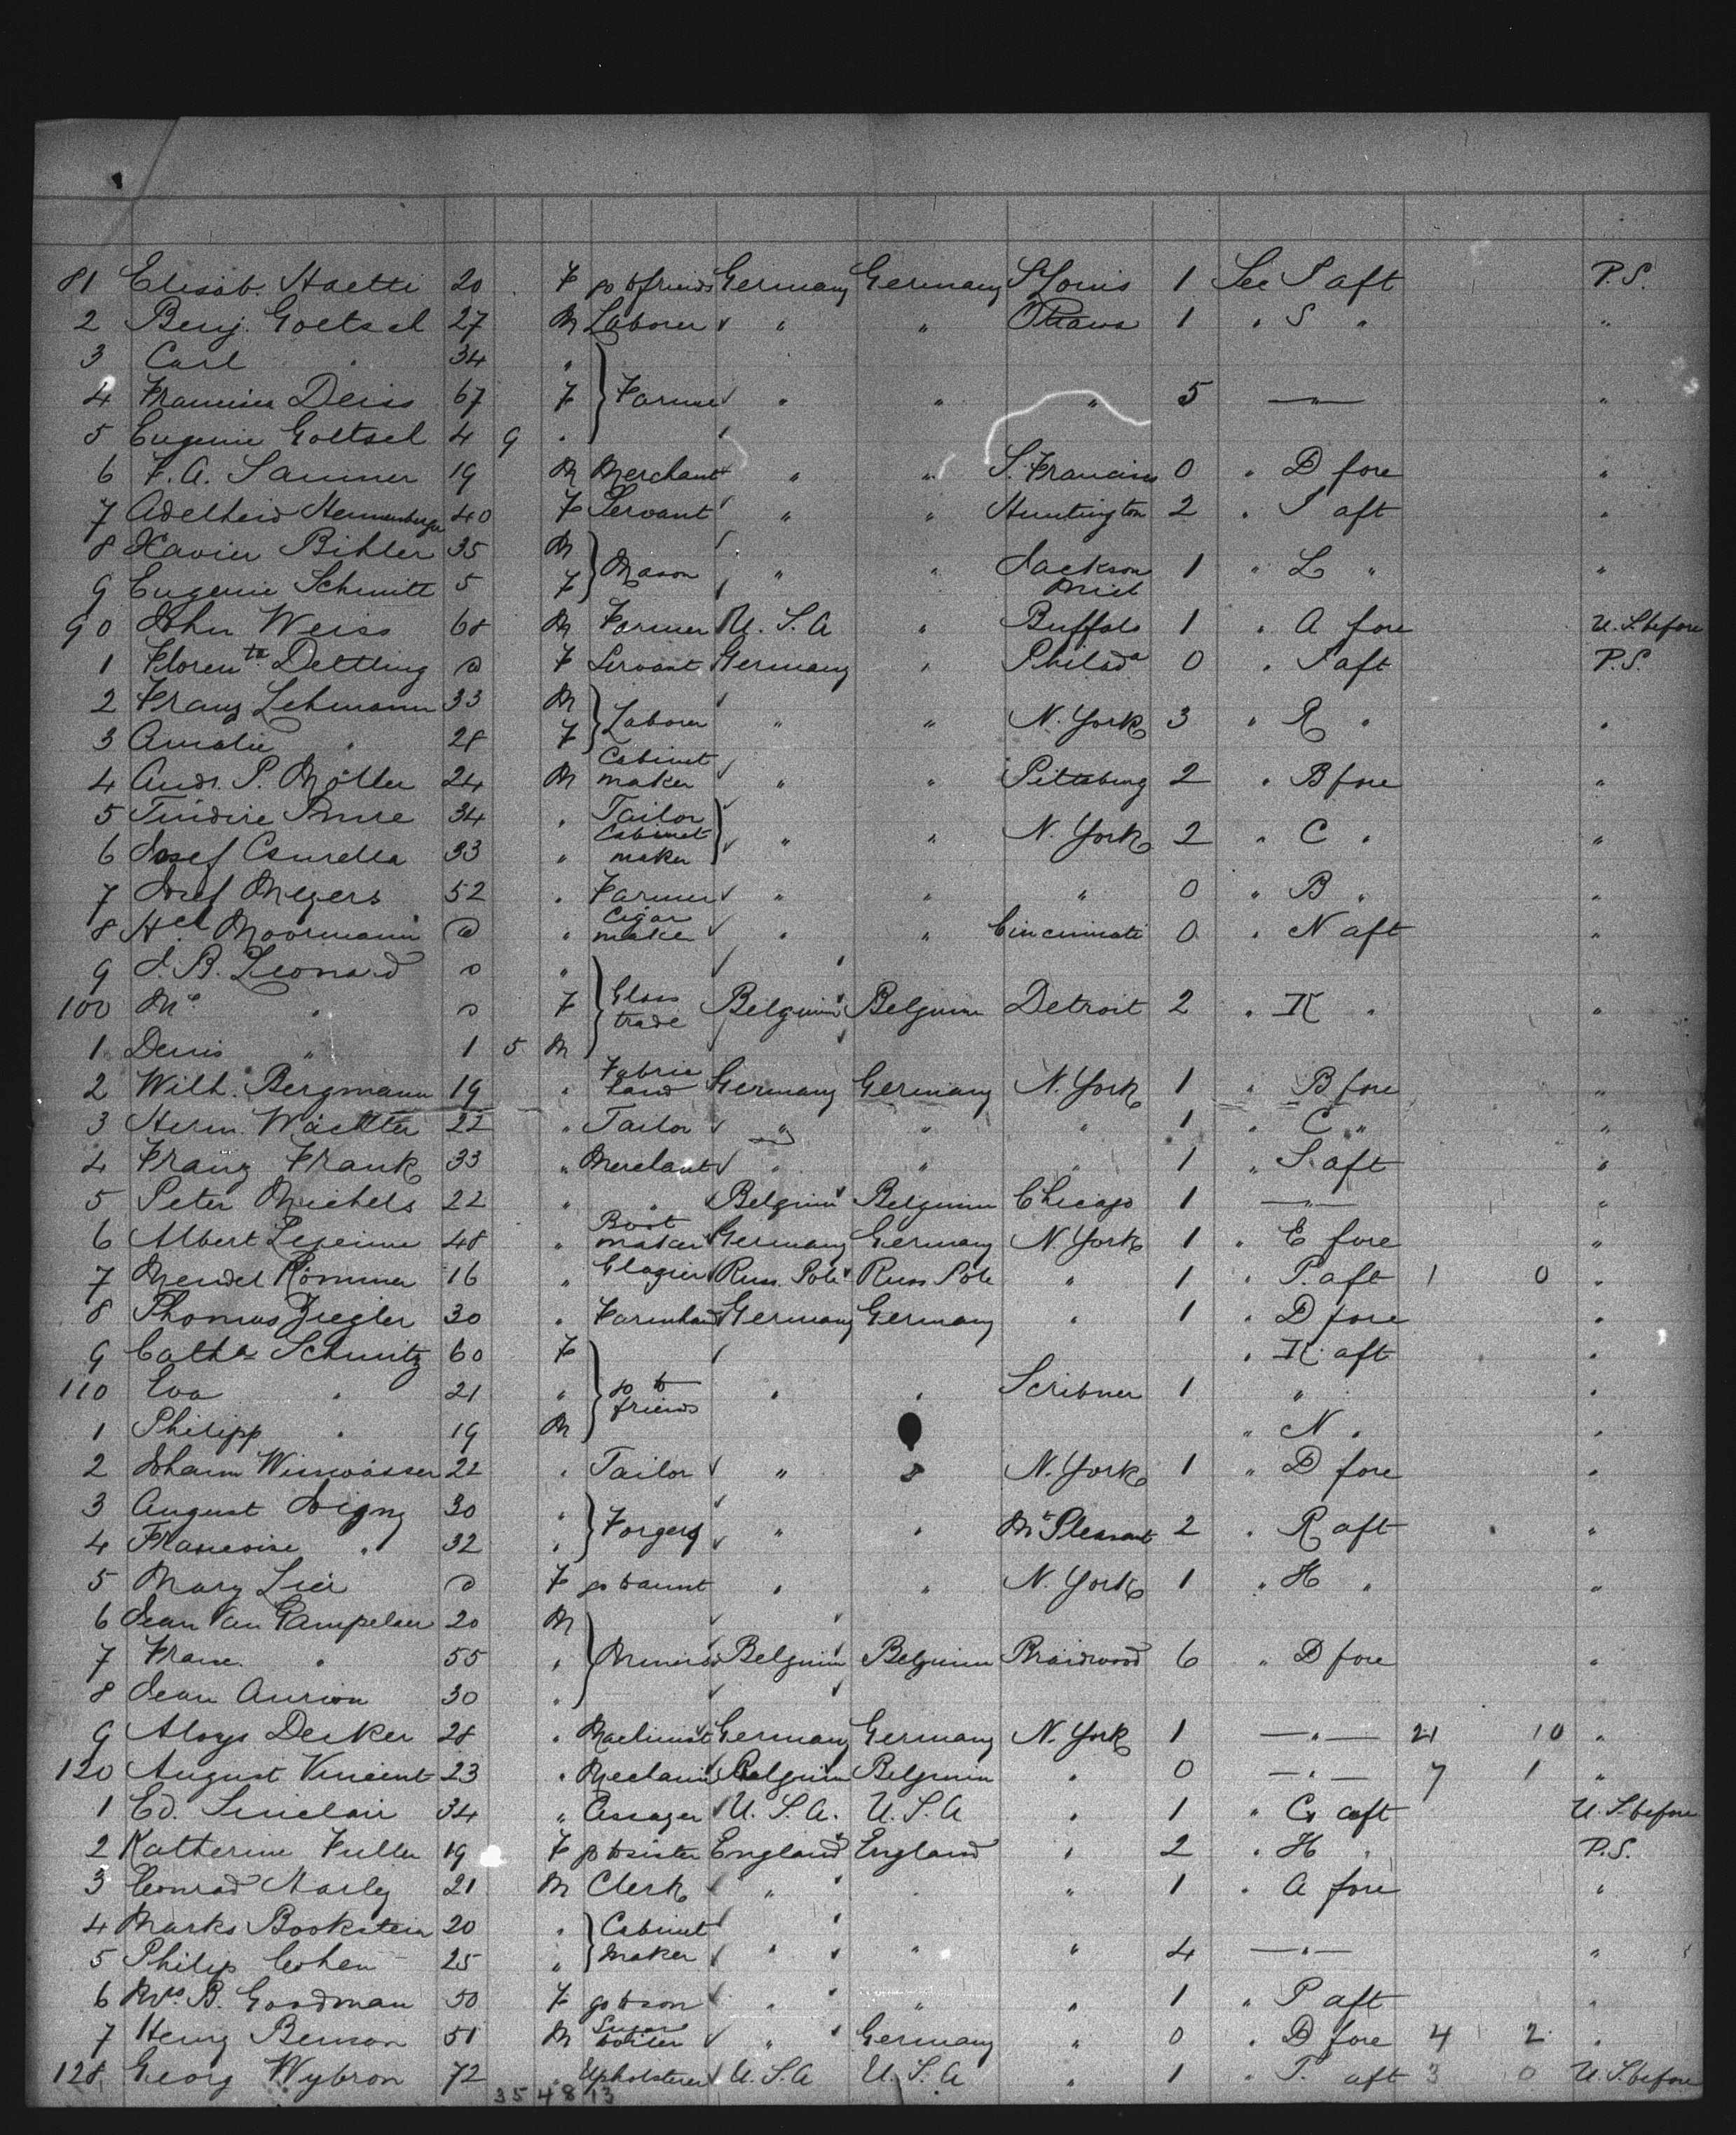 81 Elisab. Haetti 20 F go to friends Germany Germany St Louis 1 Sec S aft P.S.
2 Benj. Goetsel 27 M Laborer " " Ottawa 1 " S " "
3 Carl " 34 "
4 Francisca Deiss 67 F Farmer " " " 5 —"— "
5 Eugenie Goetsel 4 9 "
6 F. A. Sammer 19 M Merchant " " S. Francisco 0 " D fore "
7 Adelheid Hermenberger 40 F Servant " " Huntington 2 " S aft "
8 Xavier Bihler 35 M Mason " " Jackson Mich 1 " L " "
9 Eugenie Schmitt 5 F
90 John Weiss 68 M Farmer U.S.A " Buffalo 1 " A fore U.S. before
1 Florenta Dettling 0 F Servant Germany " Philada 0 " S aft P.S.
2 Franz Lehmann 33 M Laborer " " N. York 3 " R " "
3 Amalie " 28 F
4 Andr. P. Möller 24 M Cabinet maker " " Pittsburg 2 " B fore "
5 34 " Tailor " " N. York 2 " C " "
6 Josef 33 " Cabinet maker
7 Josef Megers 52 " Farmer " " " 0 " B " "
8 Hch Moormann 0 " Cigar maker " " Cincinnati 0 " N aft "
9 J. B. Leonard 0 "
100 Me " 0 F Glass trade Belgium Belgium Detroit 2 " K " "
1 Denis " 1 5 M
2 Wilh. Bergmann 19 " Fabric hand Germany Germany N. York 1 " B fore "
3 Herm. Wächter 22 " Tailor " " " 1 " C " "
4 Franz Frank 33 " Merchant " " " 1 " S aft "
5 Peter Michels 22 " " Belgium Belgium Chicago 1 —"— "
6 Albert Lejeune 48 " Boot maker Germany Germany N. York 1 " E fore "
7 Mendel Römmer 16 " Glazier Russ. Pole Russ. Pole " 1 " P. aft 1 0 "
8 Thomas Ziegler 30 " Farmhand Germany Germany " 1 " D fore "
9 Catha Schmitz 60 F " K aft "
110 Eva " 21 " go to friends " " Scribner 1 " "
1 Philipp " 19 M " N " "
2 Johann Weisswasser 22 " Tailor " " N. York 1 " D fore "
3 August Joigny 30 "
4 Francoise " 32 " Forgers " " Mt Pleasant 2 " R aft "
5 Mary Lier 0 F go to aunt " " N. York 1 " H " "
6 Jean Van Campelaer 20 M
7 Franc. " 55 " Miners Belgium Belgium Braidwood 6 " D fore "
8 Jean Aurion 30 "
9 Aloys Decker 28 " Machinist Germany Germany N. York 1 —"— 21 10 "
120 August Vincent 23 " Mechanic Belgium Belgium " 0 —"— 7 1 "
1 Ed. Sinclair 34 " Assayer U.S.A. U.S.A " 1 " G aft U.S. before
2 Katherine Fuller 19 F go to sister England England " 2 " H " P.S.
3 Conrad Harley 21 M Clerk " " " 1 " A fore "
4 Marks Bookstein 20 "
5 Philip Cohen 25 " Cabinet maker " " " 4 —"— "
6 Mrs. B. Goodman 50 F go to son " " " 1 " P aft "
7 Henry Benson 51 M Sugar boiler " Germany " 0 " D fore 4 2 "
128 Georg Wybron 72 " Upholsterer U.S.A U.S.A " 1 " P. aft 3 0 U.S. before
35 48 13